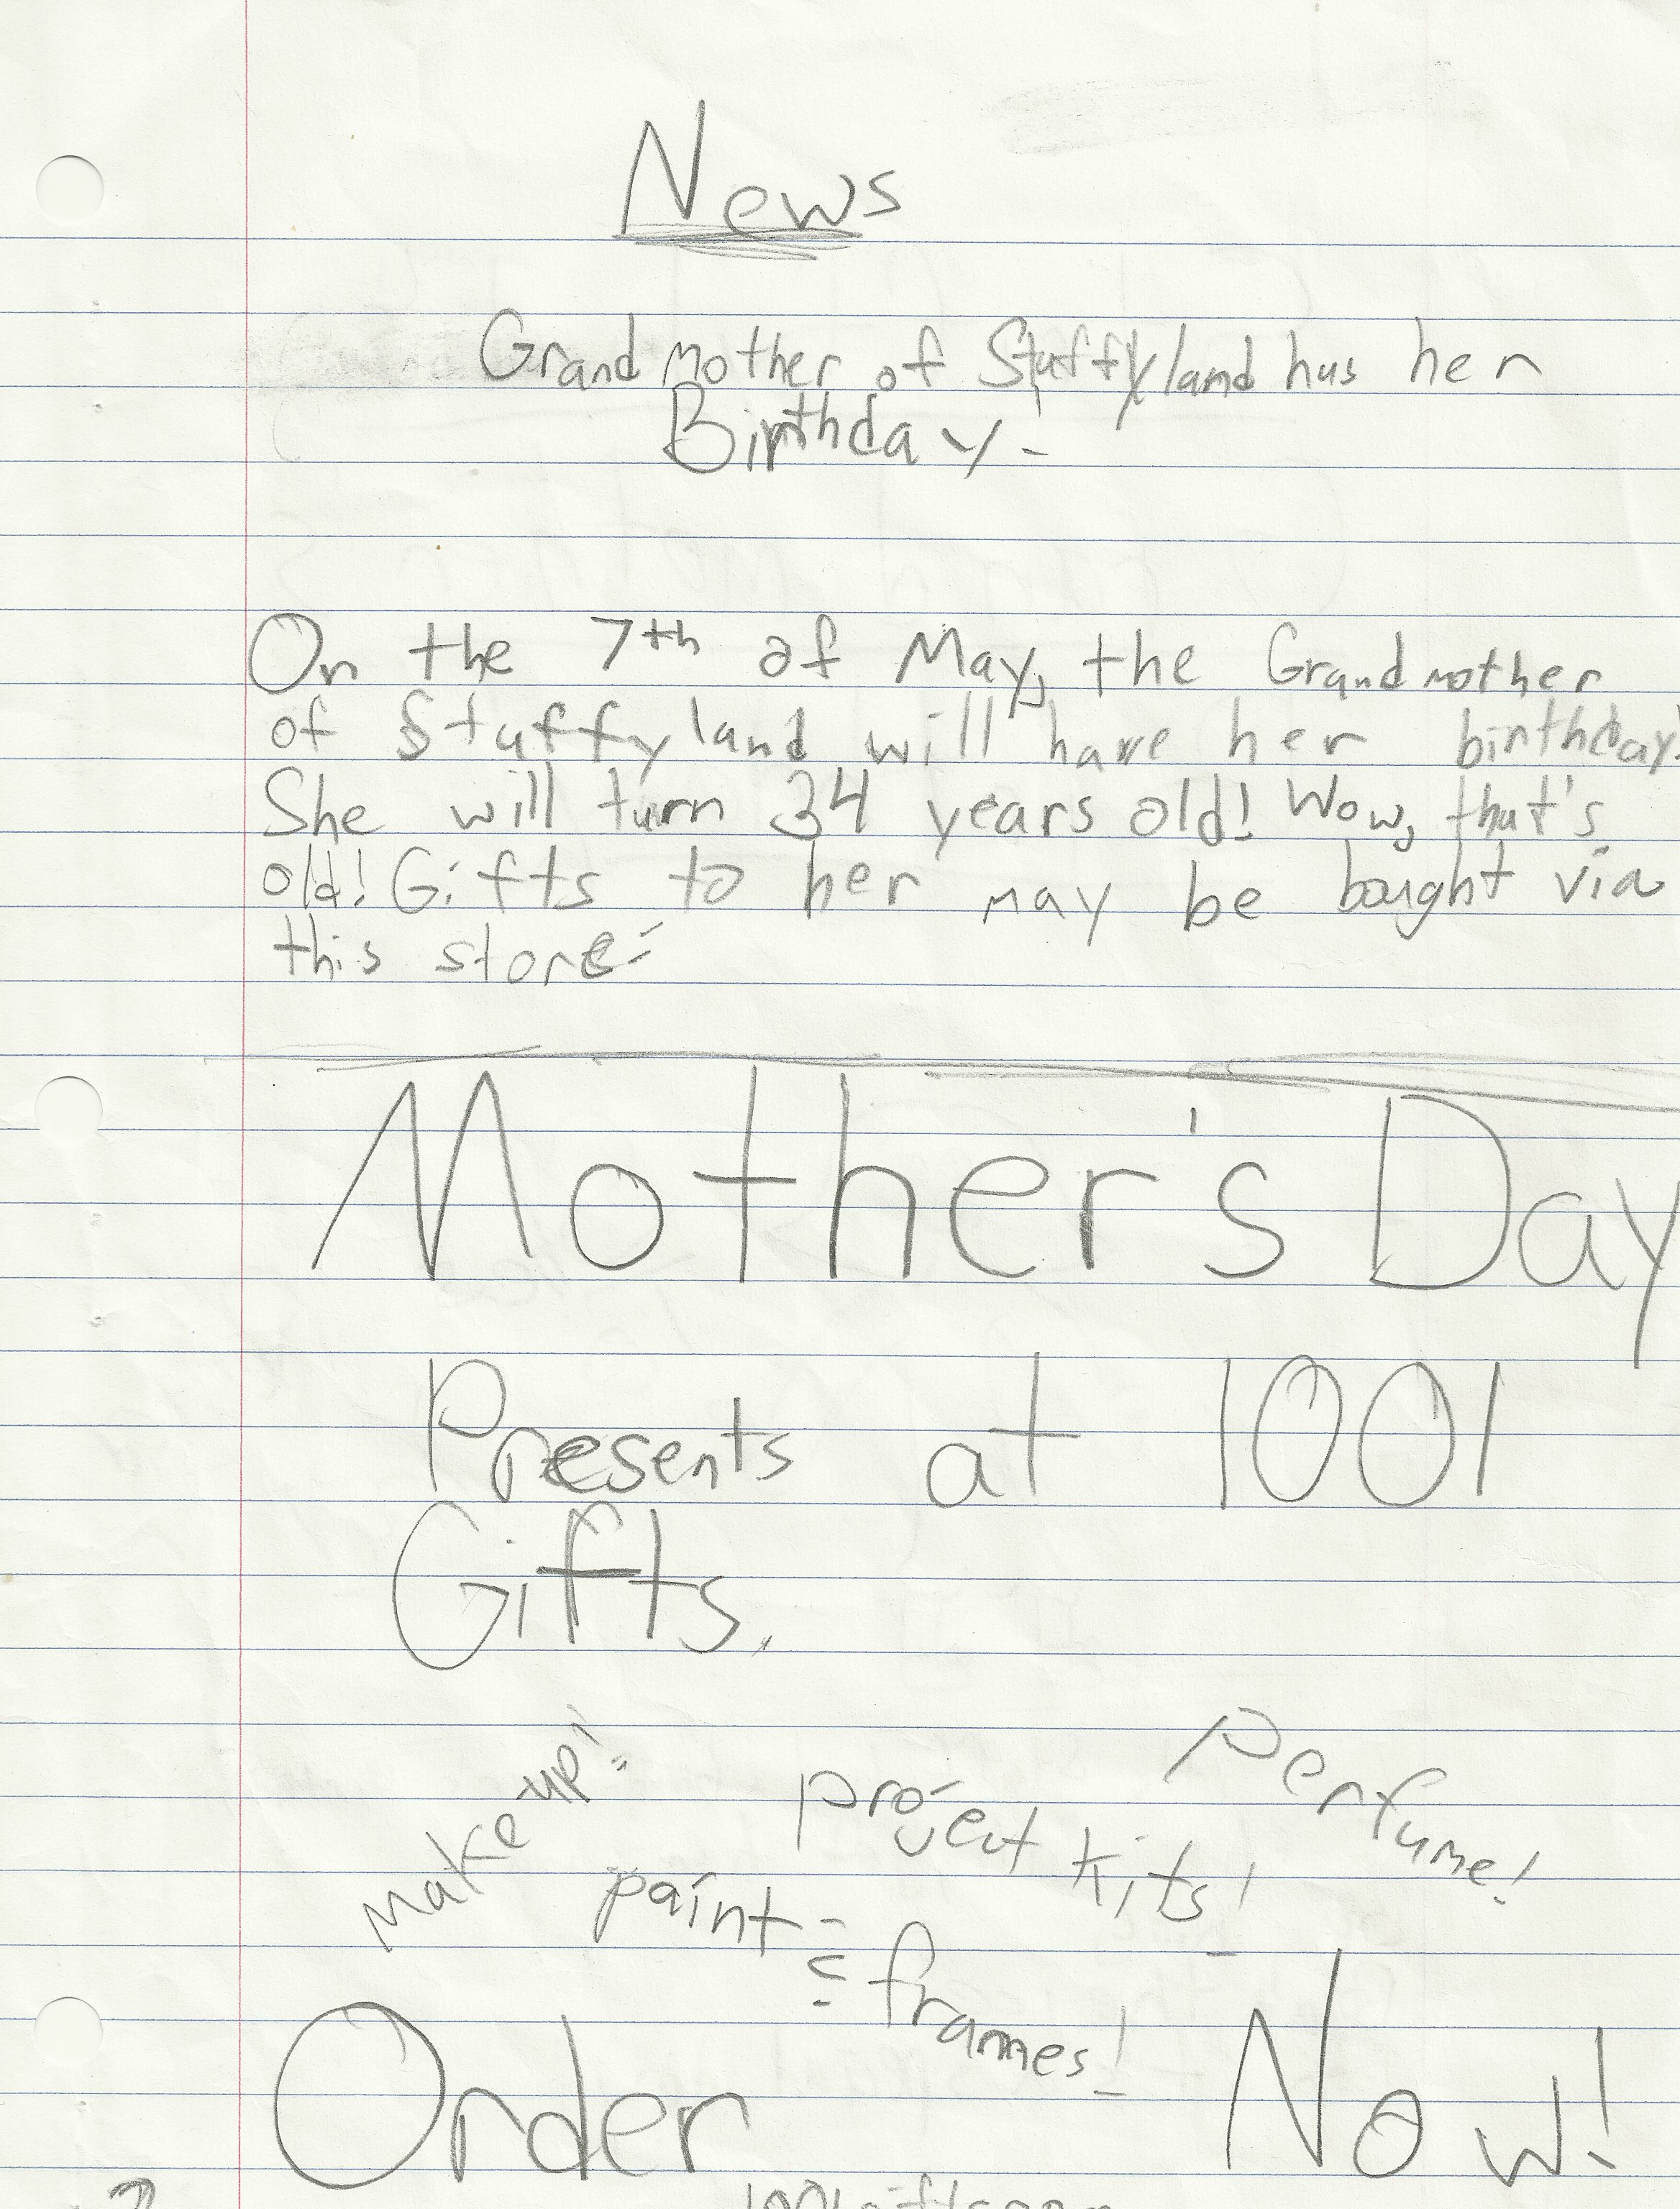 News
Grandmother of Stuffyland has her
Birthday.
On the 7th of May, the Grandmother
of Stuffyland will have her birthday!
She will turn 34 years old! Wow, that's
old! Gifts to her may be bought via
this store:
Mother's Day
Presents at 1001
Gifts.
Make-up!
project kits!
Perfume!
paint!
frames!
Order Now!